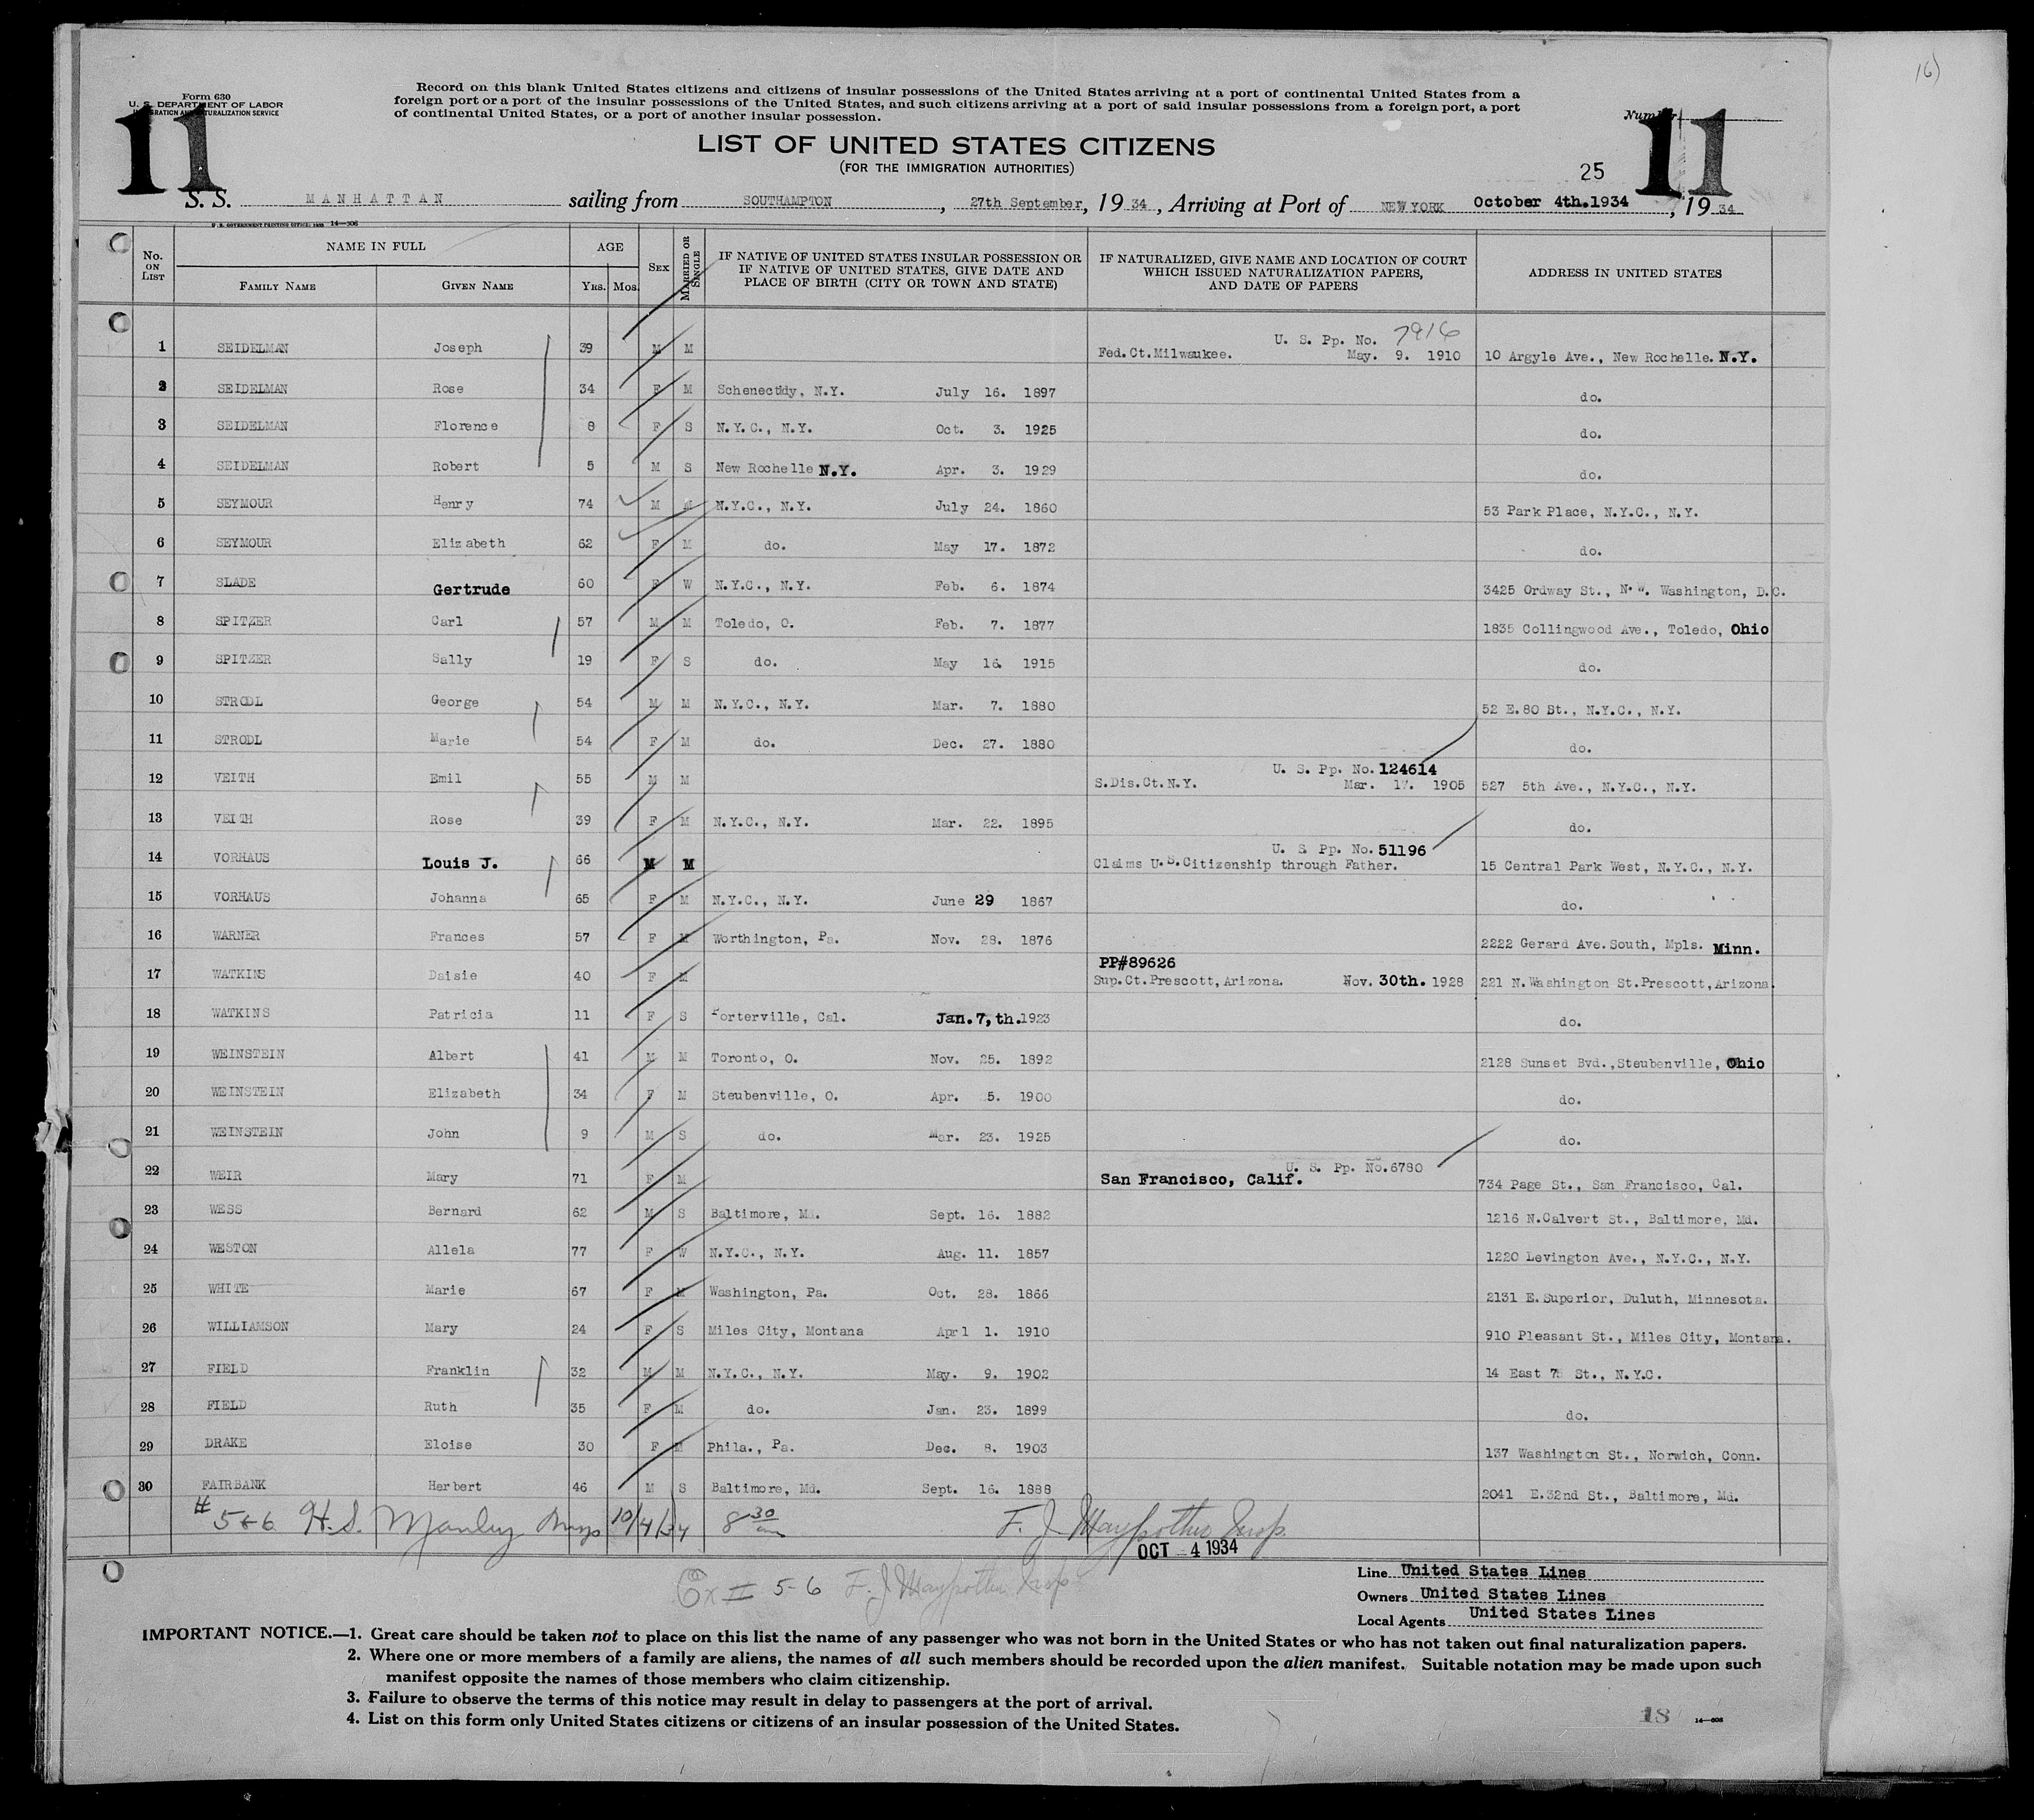 16)
Form 630
U. S. DEPARTMENT OF LABOR
IMMIGRATION AND NATURALIZATION SERVICE
11
Record on this blank United States citizens and citizens of insular possessions of the United States arriving at a port of continental United States from a
foreign port or a port of the insular possessions of the United States, and such citizens arriving at a port of said insular possessions from a foreign port, a port
of continental United States, or a port of another insular possession.
Number
11
LIST OF UNITED STATES CITIZENS
(FOR THE IMMIGRATION AUTHORITIES)
25
S. S. MANHATTAN sailing from SOUTHAMPTON, 27th September, 19 34, Arriving at Port of NEW YORK October 4th.1934, 19 34
U. S. GOVERNMENT PRINTING OFFICE: 1933 14—306
No. ON LIST NAME IN FULL FAMILY NAME GIVEN NAME AGE YRS. MOS. SEX MARRIED OR SINGLE IF NATIVE OF UNITED STATES INSULAR POSSESSION OR IF NATIVE OF UNITED STATES, GIVE DATE AND PLACE OF BIRTH (CITY OR TOWN AND STATE) IF NATURALIZED, GIVE NAME AND LOCATION OF COURT WHICH ISSUED NATURALIZATION PAPERS, AND DATE OF PAPERS ADDRESS IN UNITED STATES
U. S. Pp. No. 7916
1 SEIDELMAN Joseph 39 M M Fed.Ct.Milwaukee. May. 9. 1910 10 Argyle Ave., New Rochelle. N.Y.
2 SEIDELMAN Rose 34 F M Schenectdy, N.Y. July 16. 1897 do.
3 SEIDELMAN Florence 8 F S N.Y.C., N.Y. Oct. 3. 1925 do.
4 SEIDELMAN Robert 5 M S New Rochelle N.Y. Apr. 3. 1929 do.
5 SEYMOUR Henry 74 M M N.Y.C., N.Y. July 24. 1860 53 Park Place, N.Y.C., N.Y.
6 SEYMOUR Elizabeth 62 F M do. May 17. 1872 do.
7 SLADE Gertrude 60 F W N.Y.C., N.Y. Feb. 6. 1874 3425 Ordway St., N.W. Washington, D.C.
8 SPITZER Carl 57 M M Toledo, O. Feb. 7. 1877 1835 Collingwood Ave., Toledo, Ohio
9 SPITZER Sally 19 F S do. May 16. 1915 do.
10 STRODL George 54 M M N.Y.C., N.Y. Mar. 7. 1880 52 E.80 St., N.Y.C., N.Y.
11 STRODL Marie 54 F M do. Dec. 27. 1880 do.
U. S. Pp. No. 124614
12 VEITH Emil 55 M M S.Dis.Ct.N.Y. Mar. 17. 1905 527 5th Ave., N.Y.C., N.Y.
13 VEITH Rose 39 F M N.Y.C., N.Y. Mar. 22. 1895 do.
U. S. Pp. No. 51196
14 VORHAUS Louis J. 66 M M Claims U.S.Citizenship through Father. 15 Central Park West, N.Y.C., N.Y.
15 VORHAUS Johanna 65 F M N.Y.C., N.Y. June 29 1867 do.
16 WARNER Frances 57 F M Worthington, Pa. Nov. 28. 1876 2222 Gerard Ave.South, Mpls. Minn.
PP#89626
17 WATKINS Daisie 40 F M Sup.Ct.Prescott,Arizona. Nov. 30th. 1928 221 N.Washington St.Prescott,Arizona.
18 WATKINS Patricia 11 F S Porterville, Cal. Jan.7,th.1923 do.
19 WEINSTEIN Albert 41 M M Toronto, O. Nov. 25. 1892 2128 Sunset Bvd.,Steubenville, Ohio
20 WEINSTEIN Elizabeth 34 F M Steubenville, O. Apr. 5. 1900 do.
21 WEINSTEIN John 9 M S do. Mar. 23. 1925 do.
U. S. Pp. No.6780
22 WEIR Mary 71 F M San Francisco, Calif. 734 Page St., San Francisco, Cal.
23 WESS Bernard 62 M S Baltimore, Md. Sept. 16. 1882 1216 N.Calvert St., Baltimore, Md.
24 WESTON Allela 77 F W N.Y.C., N.Y. Aug. 11. 1857 1220 Levington Ave., N.Y.C., N.Y.
25 WHITE Marie 67 F M Washington, Pa. Oct. 28. 1866 2131 E.Superior, Duluth, Minnesota.
26 WILLIAMSON Mary 24 F S Miles City, Montana Aprl 1. 1910 910 Pleasant St., Miles City, Montana.
27 FIELD Franklin 32 M M N.Y.C., N.Y. May. 9. 1902 14 East 75 St., N.Y.C.
28 FIELD Ruth 35 F M do. Jan. 23. 1899 do.
29 DRAKE Eloise 30 F M Phila., Pa. Dec. 8. 1903 137 Washington St., Norwich, Conn.
30 FAIRBANK Herbert 46 M S Baltimore, Md. Sept. 16. 1888 2041 E.32nd St., Baltimore, Md.
#5+6 H.S. Manley Insp 10/4/34 8 30 am F. J. Maypother Insp.
OCT 4 1934
Ex II 5-6 F. J. Maypother Insp
Line United States Lines
Owners United States Lines
Local Agents United States Lines
IMPORTANT NOTICE.—1. Great care should be taken not to place on this list the name of any passenger who was not born in the United States or who has not taken out final naturalization papers.
2. Where one or more members of a family are aliens, the names of all such members should be recorded upon the alien manifest. Suitable notation may be made upon such
manifest opposite the names of those members who claim citizenship.
3. Failure to observe the terms of this notice may result in delay to passengers at the port of arrival.
4. List on this form only United States citizens or citizens of an insular possession of the United States.
18 14—606